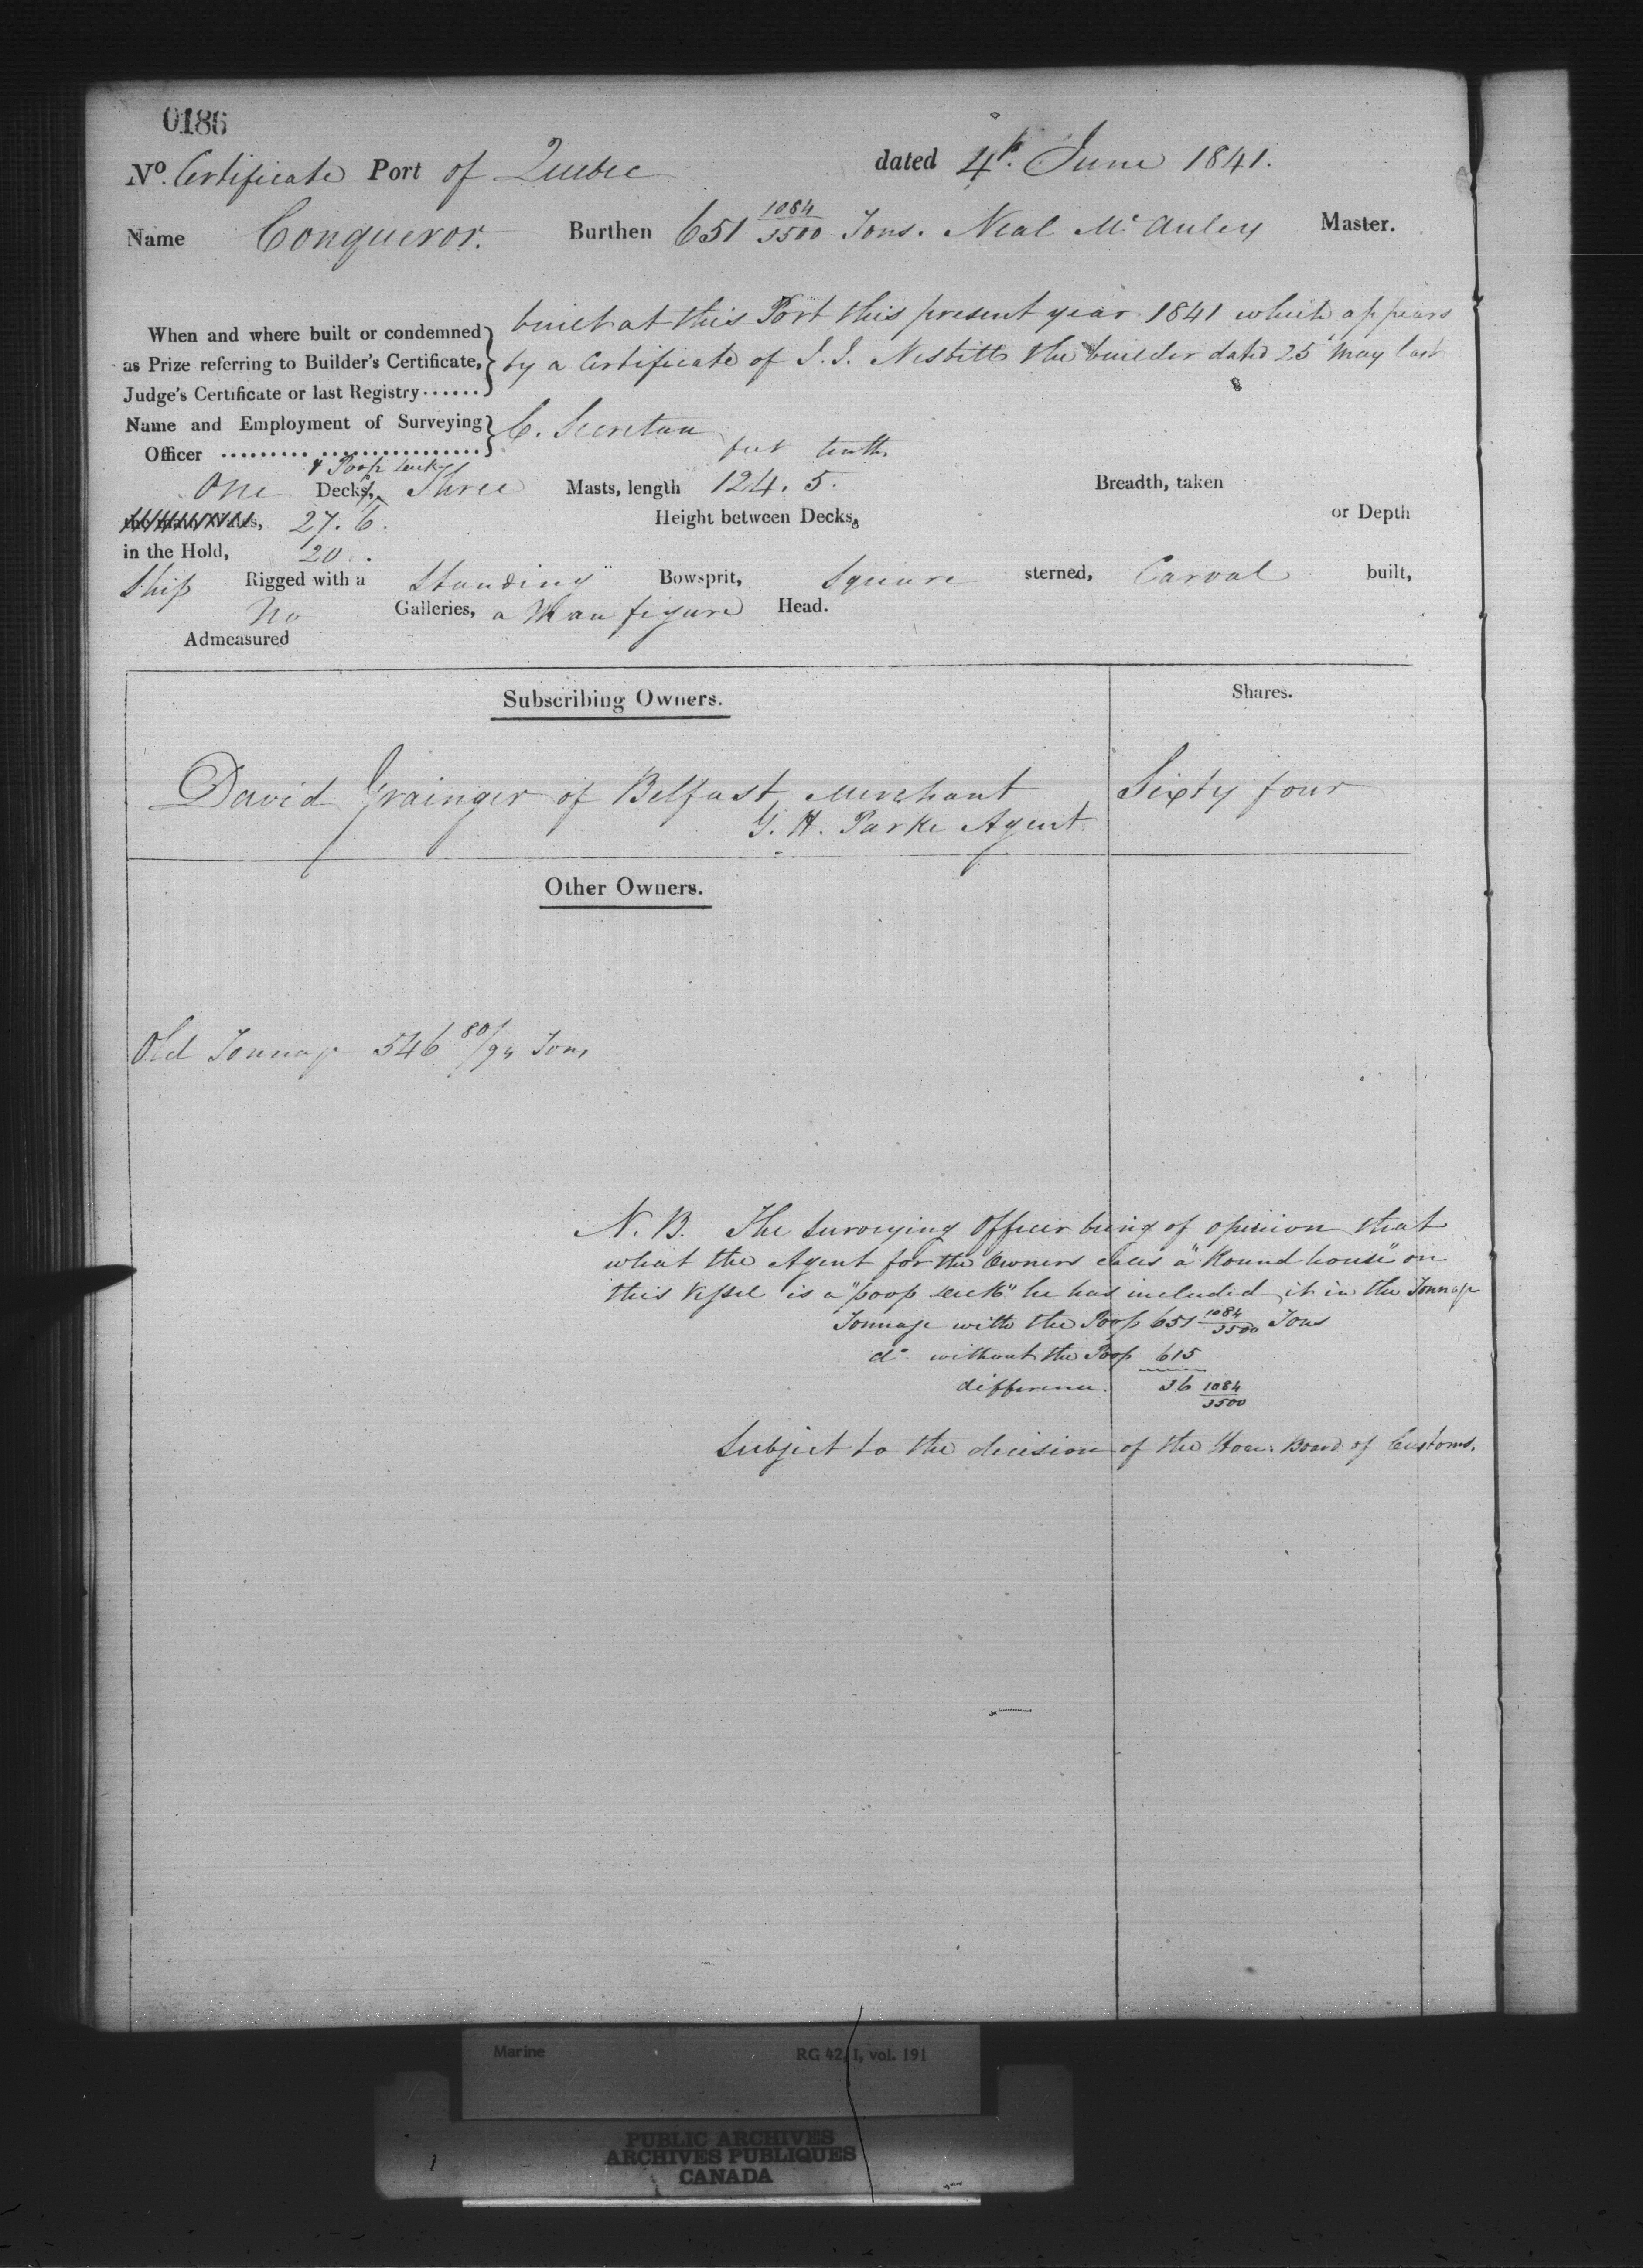 0186
No. Certificate Port of Quebec dated 4th. June 1841.
Name Conqueror. Burthen 651 1084/3500 Tons. Neal Mc Auley Master.
When and where built or condemned built at this Port this present year 1841 which appears
as Prize referring to Builder's Certificate, by a Certificate of J. J. Nesbitt the builder dated 25 May last
Judge's Certificate or last Registry ......
Name and Employment of Surveying C. Secretan
Officer ......... ................ feet tenths
& Poop deck
One Decks, Three Masts, length 124. 5. Breadth, taken
27. 6. Height between Decks, or Depth
in the Hold, 20 . .
Ship Rigged with a Standing Bowsprit, Square sterned, Carval built,
No Galleries, a Man figure Head.
Admeasured
Subscribing Owners. Shares.
David Grainger of Belfast, Merchant Sixty four
G. H. Parke Agent.
Other Owners.
Old Tonnage 546 80/94 Tons
N. B. The Surveying Officer being of opinion that
what the Agent for the Owners calls a "Round house" on
this Vessel is a "poop deck" he has included it in the Tonnage
Tonnage with the Poop 651 1084/3500 Tons
do. without the Poop 615
difference. 36 1084/3500
Subject to the decision of the Hon: Board of Customs.
Marine RG 42, I, vol. 191
PUBLIC ARCHIVES
ARCHIVES PUBLIQUES
CANADA